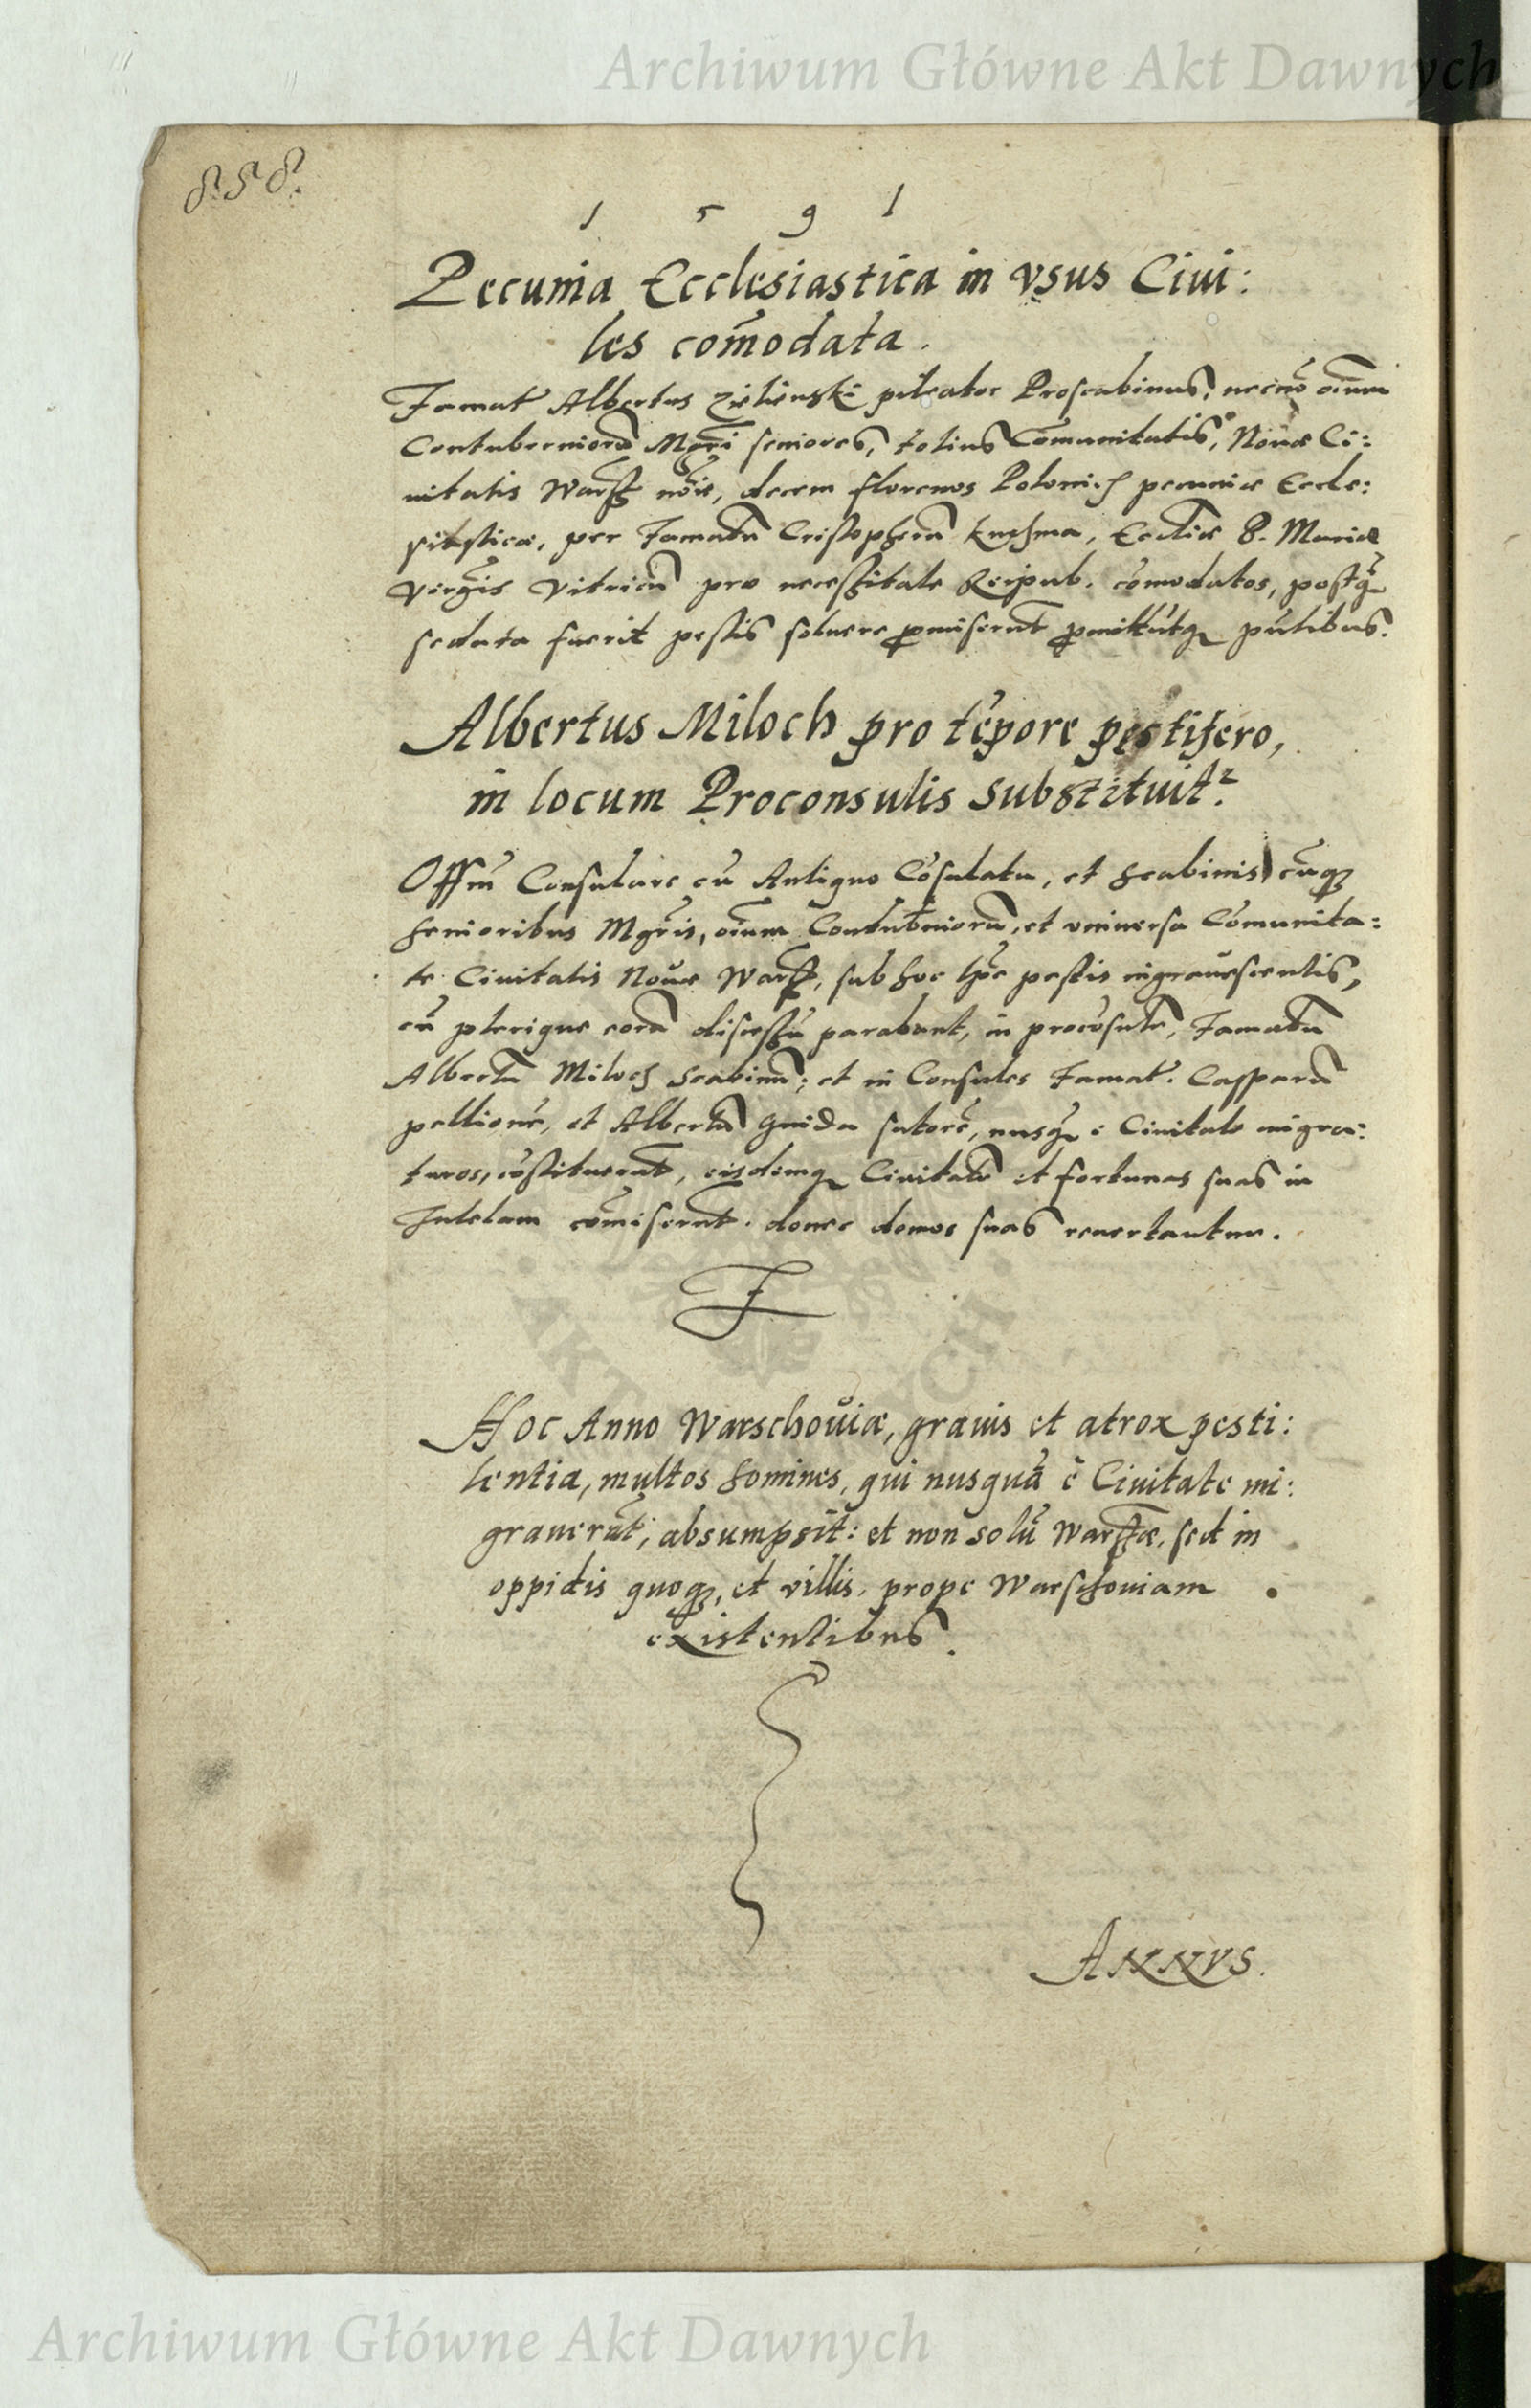 Archiwum Główne Akt Dawnych
858.
1 5 9 1
Pecunia Ecclesiastica in vsus Ciui:
les com̄odata.
Famat Albertus Zielienski pileator Proscabinus, necnō oīum
Contuberniorū Mgri seniores, totius Comunitatis, Nouæ Ci:
uitatis Warsz noīe, decem florenos pecuniæ Eccle:
siasticæ, per Famatū Cristopherū Eccliæ B. Mariæ
virgīs vitricū pro necessitate Reipub. cōmodatos, postq̄
sedata fuerit pestis soluere promiserūt
Albertus Miloch pro tēpore pestifero,
in locum Proconsulis substituit.
Offm Consulare cū Antiquo Cōsulatu, et Scabinis, cūq
senioribus Mgris, oīum Contuberniorū, et vniuersa Comunita:
te Ciuitatis Nouæ Warsz, sub hoc tpe pestis ingrauescentis,
cū plerique eorū discessū parabant, in procōsulē, Famatū
Albertū Miloch Scabinū; et in Consules Famat. Casparū
pellionē, et Albertū Guida sutorē, nusq̄ e Ciuitate migra:
turos, cōstituerūt, eisdemq Ciuitatē et fortunas suas in
Tutelam cōmiserūt. donec domos suas reuertantur.
Hoc Anno Warschouiæ, grauis et atrox pesti:
lentia, multos homines, qui nusquā è Ciuitate mi:
grauerūt, absumpsit: et non solū Warssæ, sed in
oppidis quoq, et villis, prope Warschouiam
existentibus.
ANNVS.
Archiwum Główne Akt Dawnych